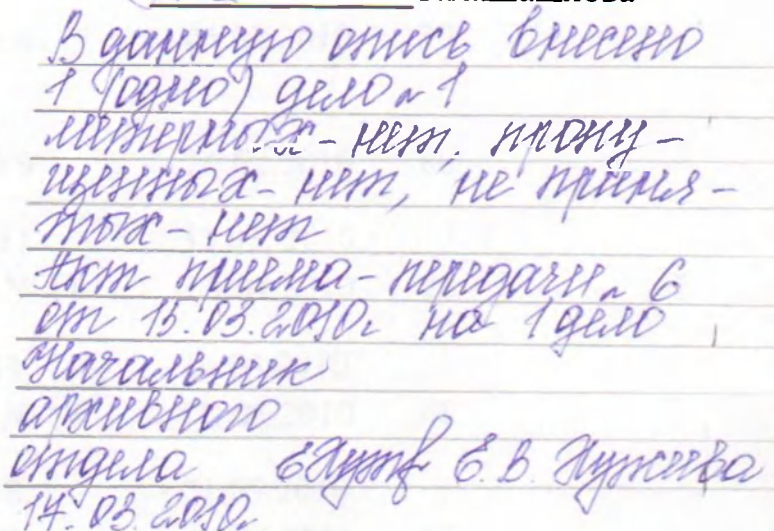 В данную опись внесено
1 (одно) дело № 1
литерных - нет, пропу-
щенных - нет, не приня-
тых - нет
Акт приема-передачи № 6
от 15.03.2010г. на 1 дело
Начальник
архивного
отдела Е.В.
17.03.2010г.